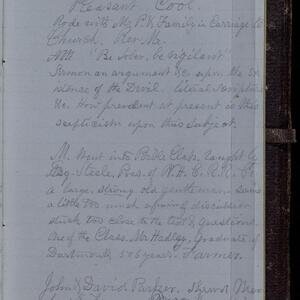 Pleasant Cool.
Rode with Mr P's Family in Carriage to
Church. Rev. Mr.
"Be sober, be vigilant"
Sermon an argument &c. upon the Ex
istence of the Devil. literal scripture
&c. How prevalent at present is this
scepticism upon this subject.
M. Went into Bible Class, taught by
Esq. Steele, Pres. of N.H.C.R.R. Co
a large, strong old gentleman. Seems
a little too much spinning discussion
stuck too close to the text & questions.
One of the Class, Mr Hadley, Graduate of
Dartmouth, 5 or 6 years. Farmer.
John & David Parker,